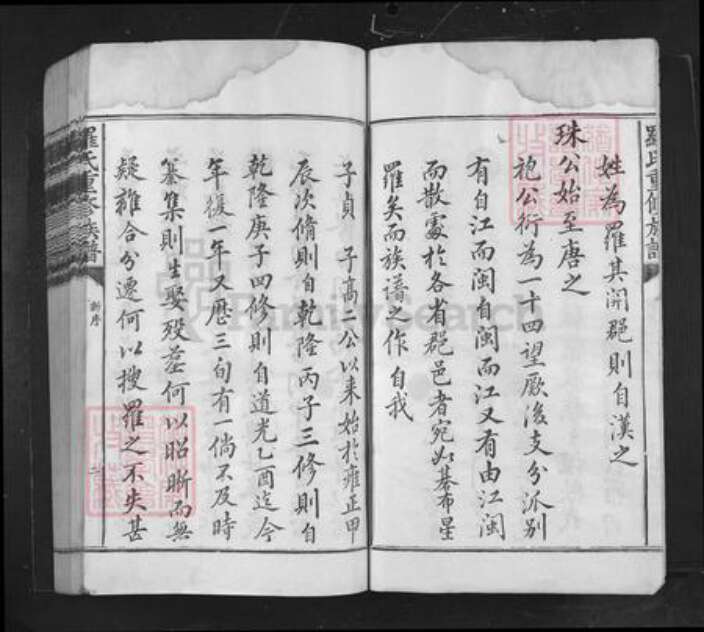 姓為羅其開郡則自漢之
珠公始至唐之
袍公衍為一十四望厥後支分派別
有自江而閩自閩而江又有由江閩
而散處於各省郡邑者宛如棊布星
羅矣而族譜之作自我
子貞 子高二公以來始於雍正甲
辰次脩則自乾隆丙子三修則自
乾隆庚子四修則自道光乙酉迄今
年復一年又歷三旬有一倘不及時
纂集則生娶歿塟何以昭晰而無
疑雜合分遷何以搜羅之不失甚
羅氏重修族譜
新序
二
羅氏重修族譜
FamilySearch